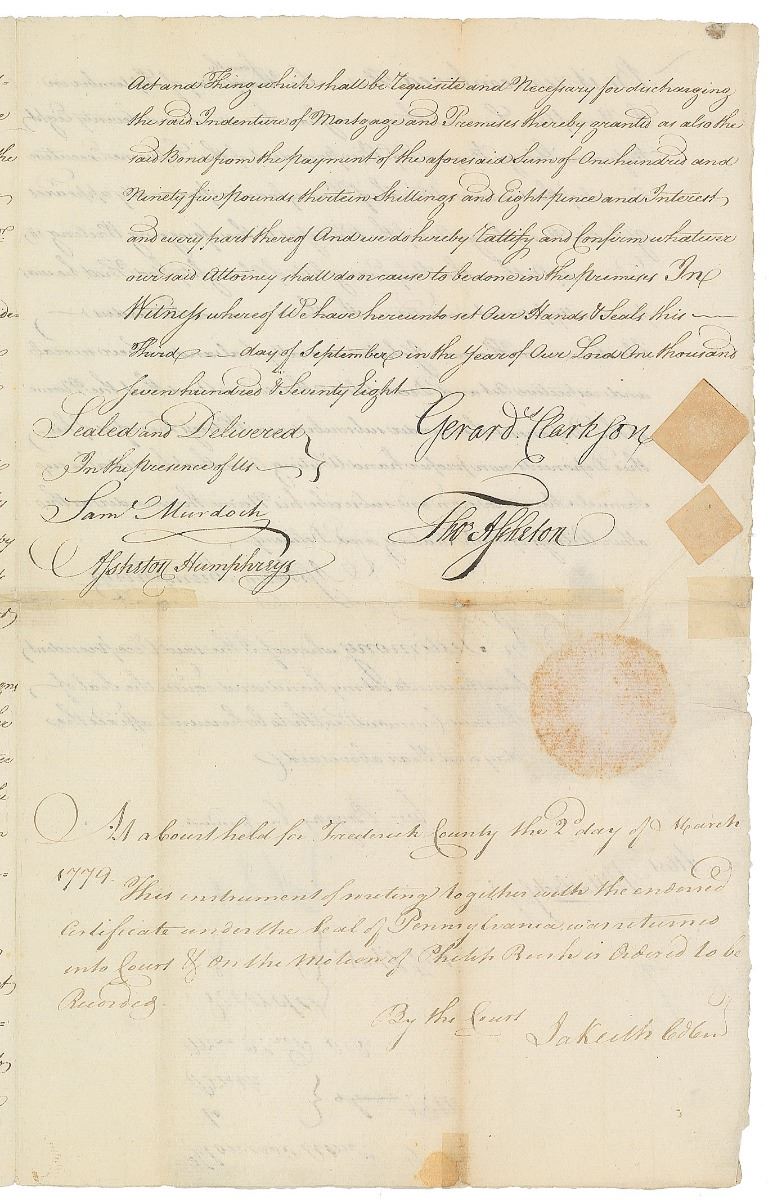 Act and Thing which shall be requisite and Necessary for discharging
the said Indenture of Mortgage and Premises thereby granted as also the
said Bond from the payment of the aforesaid Sum of One hundred and
Ninety five pounds thirteen Shillings and Eight pence and Interest
and every part thereof And we do hereby Rattify and Confirm whatever
our said Attorney shall do or cause to be done in the premises In
Witness whereof We have hereunto set Our Hands & Seals this
Third day of September in the Year of Our Lord One thousand
Seven hundred & Seventy Eight
Sealed and Delivered
In the presence of Us
Gerard. Clarkson
Saml. Murdoch
Thos. Assheton
Assheton Humphreys
At a Court held for Frederick County the 2d day of March
1779.
This instrument of writing together with the endorsed
Certificate under the Seal of Pennsylvania was returned
into Court & on the Motion of Philip Bush is Ordered to be
Recorded
By the Court
Ja Keith